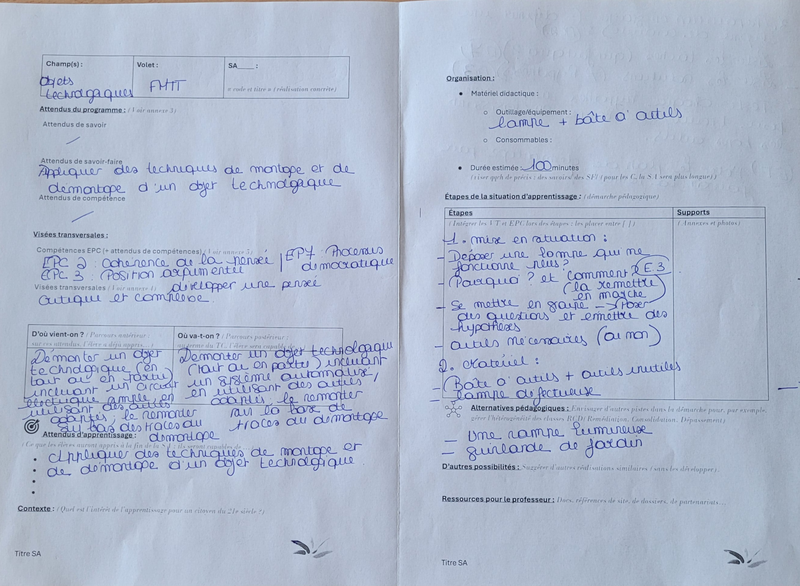 Champ(s) :
Volet :
SA____ :
Objets
technologiques
FMTT
« code et titre » (réalisation concrète)
Attendus du programme : (Voir annexe 3)
Attendus de savoir
Attendus de savoir-faire
Appliquer des techniques de montage et de
démontage d'un objet technologique
Attendus de compétence
Visées transversales :
Compétences EPC (+ attendus de compétences)
EPC 2 : cohérence de la pensée
EPC 3 : Position argumentée
EP7 : Processus
démocratique
Visées transversales (Voir annexe
développer une pensée
critique et complexe.
D'où vient-on ? / Parcours antérieur :
Où va-t-on ? / Parcours postérieur :
Démonter un objet
technologique (en
tout ou en partie)
incluant un circuit
électrique simple, en
utilisant des outils
adaptés, le remonter
du bas des traces du
démontage
Démonter un objet technologique
(tout ou en partie) incluant
un système automatisé,
en utilisant des outils
adaptés, le remonter
sur la base de
traces du démontage
Attendus d'apprentissage :
Appliquer des techniques de montage et
de démontage d'un objet technologique
Contexte : (Quel est l'intérêt de l'apprentissage pour un citoyen du 21e siècle ?)
Titre SA
Organisation :
Matériel didactique :
Outillage/équipement :
lampe + boîte à outils
Consommables :
Durée estimée : 100 minutes
Étapes de la situation d'apprentissage : (démarche pédagogique)
Étapes
Supports
(Intégrer les VT et EPC lors des étapes : les placer entre [ ] )
(Annexes et photos)
1. mise en situation :
- Déposer une lampe qui ne
fonctionne plus ?
- Pourquoi ? et comment ? E.3
(la remettre
en marche)
- Se mettre en groupe → Poser
des questions et émettre des
hypothèses
- outils nécessaires (ou non)
2. Matériel :
- Boîte à outils + outils inutiles
- Lampe défectueuse
Alternatives pédagogiques : Envisager d'autres pistes dans la démarche pour, par exemple,
gérer l'hétérogénéité des classes RCD( Remédiation, Consolidation, Dépassement)
- Une lampe lumineuse
- guirlande de jardin
D'autres possibilités : Suggérer d'autres réalisations similaires (sans les développer).
Ressources pour le professeur : Docs, références de site, de dossiers, de partenariats...
Titre SA